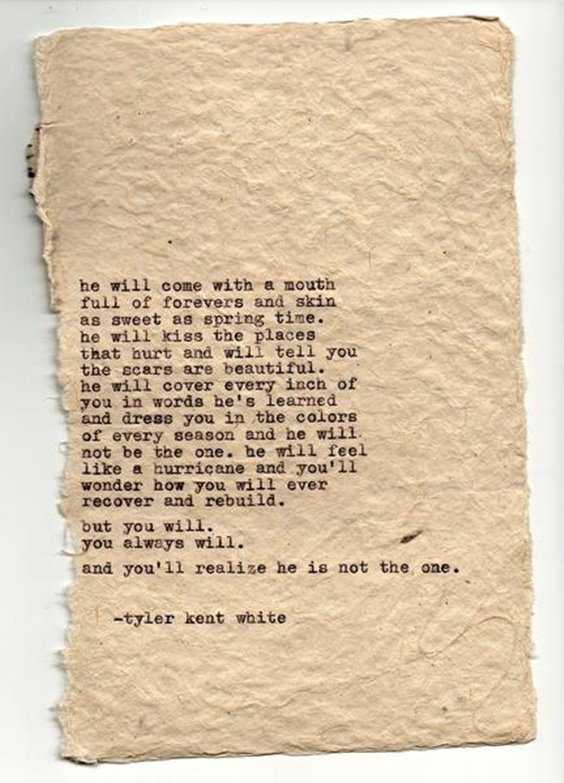 he will come with a mouth
full of forevers and skin
as sweet as spring time.
he will kiss the places
that hurt and will tell you
the scars are beautiful.
he will cover every inch of
you in words he's learned
and dress you in the colors
of every season and he will
not be the one. he will feel
like a hurricane and you'll
wonder how you will ever
recover and rebuild.
but you will.
you always will.
and you'll realize he is not the one.
-tyler kent white